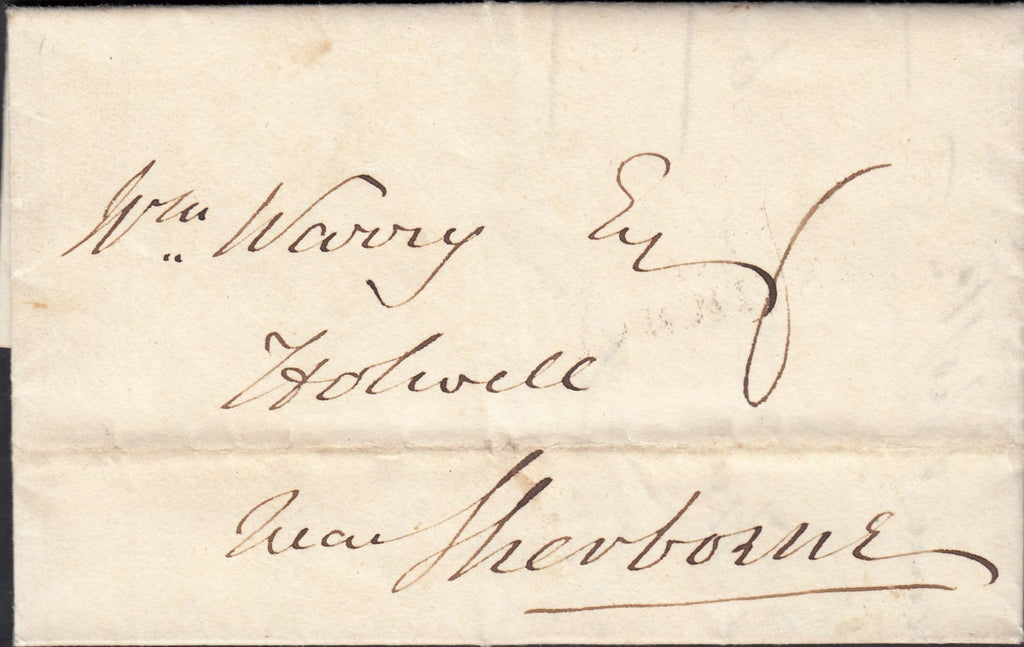 Wm Warry Esq
Holwell
near Sherborne